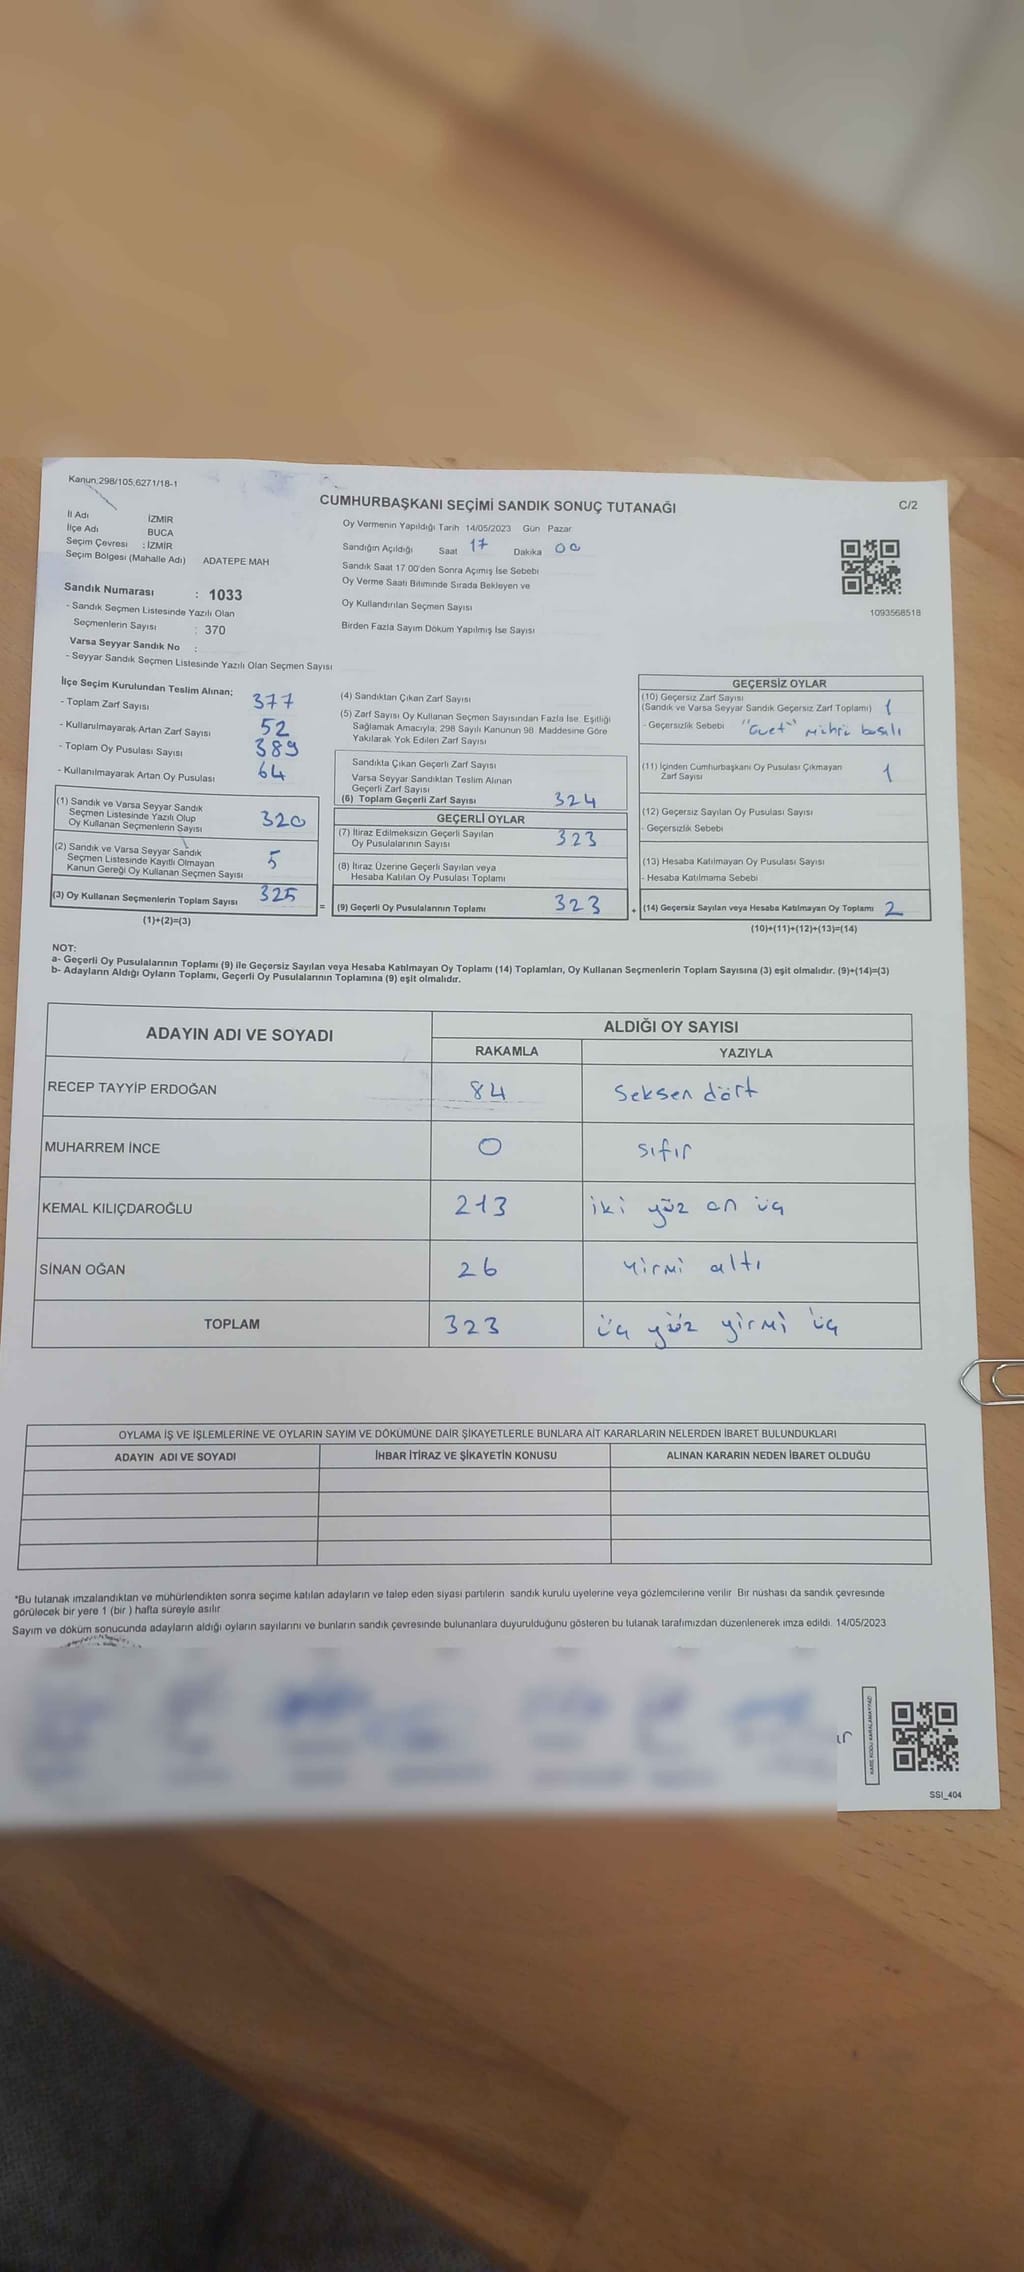 Kanun;298/105,6271/18-1
CUMHURBAŞKANI SEÇİMİ SANDIK SONUÇ TUTANAĞI
C/2
İl Adı İZMİR
İlçe Adı BUCA
Seçim Çevresi : İZMİR
Seçim Bölgesi (Mahalle Adı) ADATEPE MAH
Sandık Numarası : 1033
- Sandık Seçmen Listesinde Yazılı Olan
Seçmenlerin Sayısı : 370
Varsa Seyyar Sandık No :
- Seyyar Sandık Seçmen Listesinde Yazılı Olan Seçmen Sayısı
Oy Vermenin Yapıldığı Tarih 14/05/2023 Gün Pazar
Sandığın Açıldığı Saat 17 Dakika 00
Sandık Saat 17 00'den Sonra Açımış İse Sebebi
Oy Verme Saati Bitiminde Sırada Bekleyen ve
Oy Kullandırılan Seçmen Sayısı
Birden Fazla Sayım Döküm Yapılmış İse Sayısı
1093568518
İlçe Seçim Kurulundan Teslim Alınan;
- Toplam Zarf Sayısı 377
- Kullanılmayarak Artan Zarf Sayısı 52
- Toplam Oy Pusulası Sayısı 389
- Kullanılmayarak Artan Oy Pusulası 64
(1) Sandık ve Varsa Seyyar Sandık
Seçmen Listesinde Yazılı Olup
Oy Kullanan Seçmenlerin Sayısı 320
(2) Sandık ve Varsa Seyyar Sandık
Seçmen Listesinde Kayıtlı Olmayan
Kanun Gereği Oy Kullanan Seçmen Sayısı 5
(3) Oy Kullanan Seçmenlerin Toplam Sayısı 325
(1)+(2)=(3)
(4) Sandıktan Çıkan Zarf Sayısı
(5) Zarf Sayısı Oy Kullanan Seçmen Sayısından Fazla İse Eşitliği
Sağlamak Amacıyla; 298 Sayılı Kanunun 98. Maddesine Göre
Yakılarak Yok Edilen Zarf Sayısı
Sandıkta Çıkan Geçerli Zarf Sayısı
Varsa Seyyar Sandıktan Teslim Alınan
Geçerli Zarf Sayısı
(6) Toplam Geçerli Zarf Sayısı 324
GEÇERLİ OYLAR
(7) İtiraz Edilmeksizin Geçerli Sayılan
Oy Pusulalarının Sayısı 323
(8) İtiraz Üzerine Geçerli Sayılan veya
Hesaba Katılan Oy Pusulası Toplamı
= (9) Geçerli Oy Pusulalarının Toplamı 323
GEÇERSİZ OYLAR
(10) Geçersiz Zarf Sayısı
(Sandık ve Varsa Seyyar Sandık Geçersiz Zarf Toplamı) 1
- Geçersizlik Sebebi "Evet" mührü basılı
(11) İçinden Cumhurbaşkanı Oy Pusulası Çıkmayan
Zarf Sayısı 1
(12) Geçersiz Sayılan Oy Pusulası Sayısı
- Geçersizlik Sebebi
(13) Hesaba Katılmayan Oy Pusulası Sayısı
- Hesaba Katılmama Sebebi
+ (14) Geçersiz Sayılan veya Hesaba Katılmayan Oy Toplamı 2
(10)+(11)+(12)+(13)=(14)
NOT:
a- Geçerli Oy Pusulalarının Toplamı (9) ile Geçersiz Sayılan veya Hesaba Katılmayan Oy Toplamı (14) Toplamları, Oy Kullanan Seçmenlerin Toplam Sayısına (3) eşit olmalıdır. (9)+(14)=(3)
b- Adayların Aldığı Oyların Toplamı, Geçerli Oy Pusulalarının Toplamına (9) eşit olmalıdır.
ADAYIN ADI VE SOYADI ALDIĞI OY SAYISI
RAKAMLA YAZIYLA
RECEP TAYYİP ERDOĞAN 84 Seksen dört
MUHARREM İNCE 0 sıfır
KEMAL KILIÇDAROĞLU 213 iki yüz on üç
SİNAN OĞAN 26 Yirmi altı
TOPLAM 323 üç yüz yirmi üç
OYLAMA İŞ VE İŞLEMLERİNE VE OYLARIN SAYIM VE DÖKÜMÜNE DAİR ŞİKAYETLERLE BUNLARA AİT KARARLARIN NELERDEN İBARET BULUNDUKLARI
ADAYIN ADI VE SOYADI İHBAR İTİRAZ VE ŞİKAYETİN KONUSU ALINAN KARARIN NEDEN İBARET OLDUĞU
*Bu tutanak imzalandıktan ve mühürlendikten sonra seçime katılan adayların ve talep eden siyasi partilerin sandık kurulu üyelerine veya gözlemcilerine verilir Bir nüshası da sandık çevresinde
görülecek bir yere 1 (bir ) hafta süreyle asılır
Sayım ve döküm sonucunda adayların aldığı oyların sayılarını ve bunların sandık çevresinde bulunanlara duyurulduğunu gösteren bu tutanak tarafımızdan düzenlenerek imza edildi. 14/05/2023
KARE KODU KARALAMAYINIZ!
SSI_404